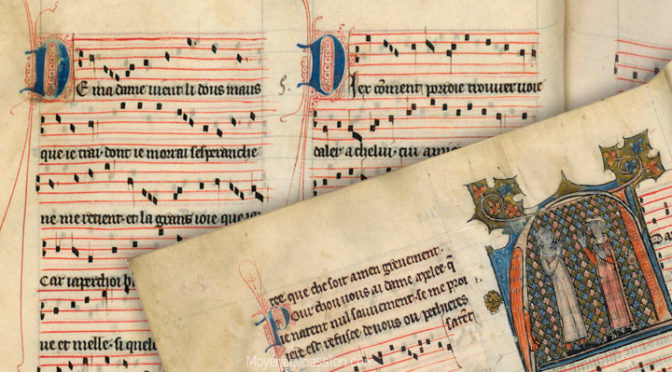 DE ma dame vient li dous maus
que ie trai· dont ie morrai sesperanche
ne me retient· et la grans ioie que ie
Car iaperchoi b
ve et melle· si quel
5.
DIex cōment porroie trouver voie
daler a chelui· cui amie
ree· que che soit a men grevement·
Pour chou vous ai dame apelee q̄
ne
nul sauvement· se me proi
iere est refusee de vous ou pechieres
saret
Moyenagepassion.com